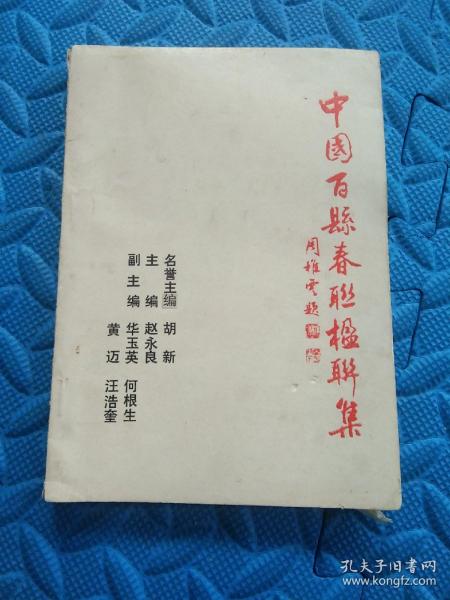 中國百縣春聯楹聯集
周稚雲題
名誉主编 胡新
主编 赵永良
副主编 华玉英 何根生
黄迈 汪浩奎
孔夫子旧书网
www.kongfz.com